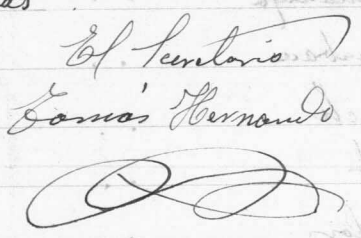 El Secretario
Tomás Hernando